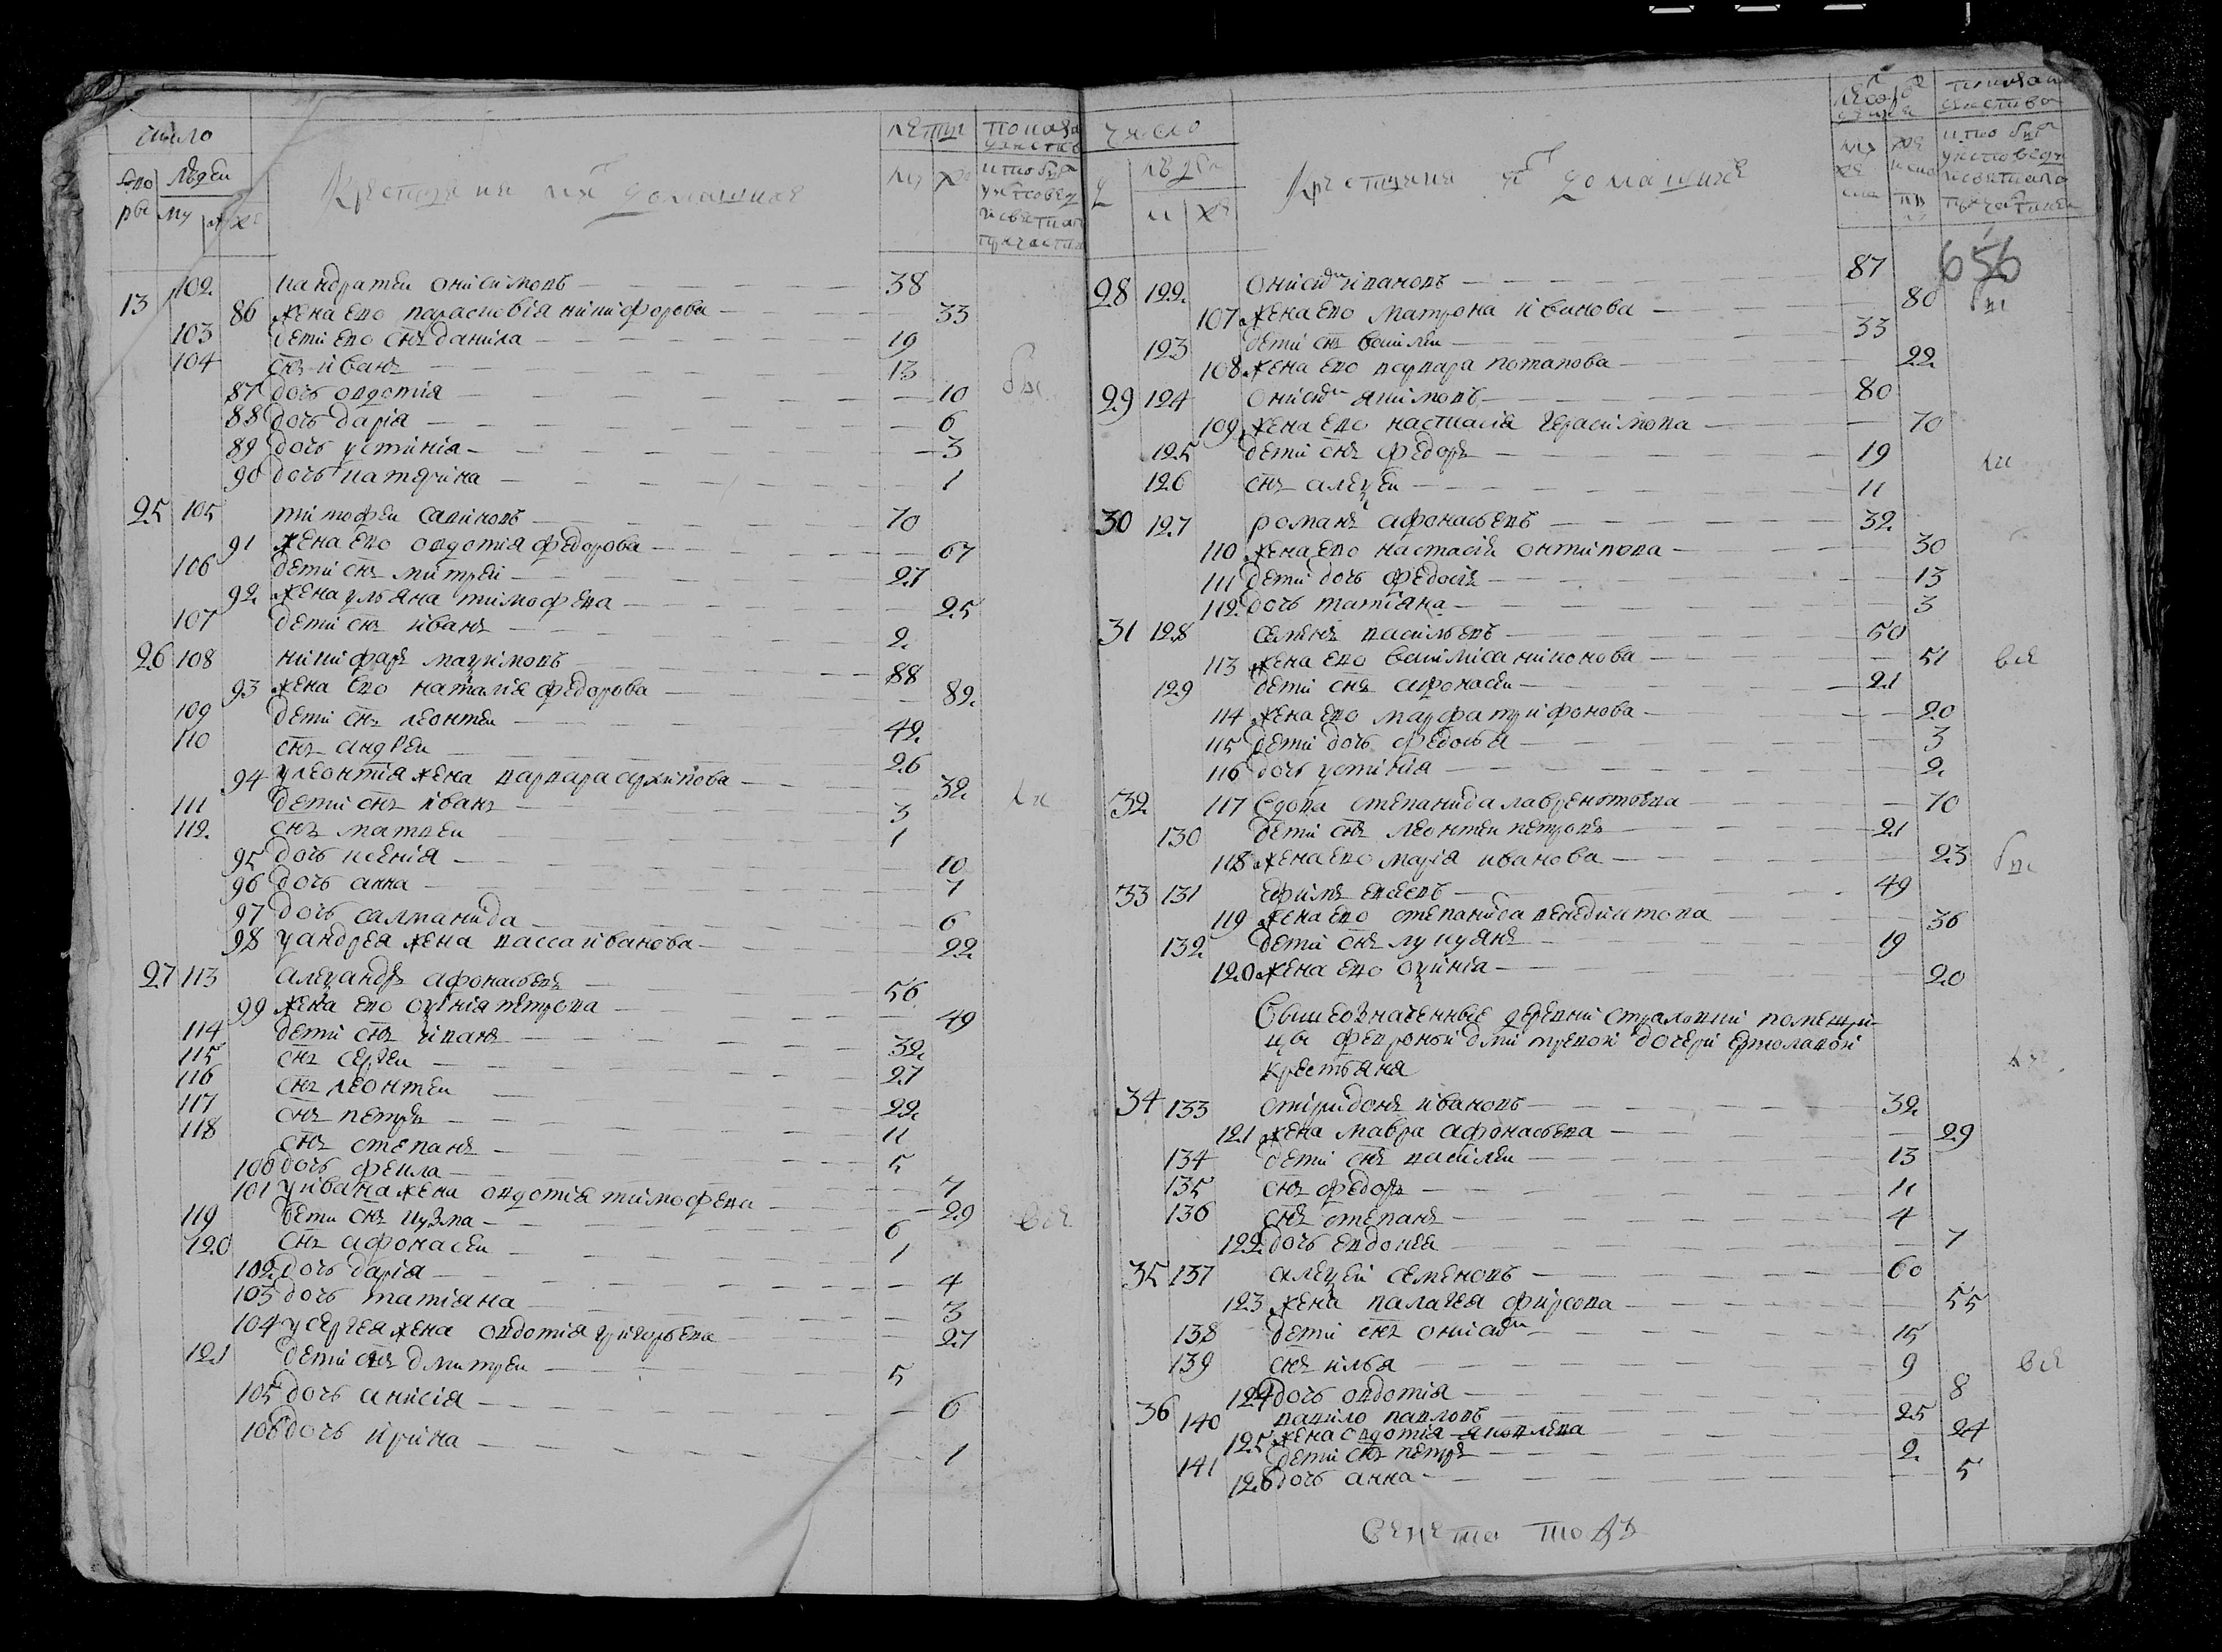 число
людей
му
же
Крестьяня и домашния
лѣты
му
же
13 102 кандратеи онисимовъ 38
86 жена ево парасковiя никифорова 33
103 дети ево снъ данила 19
104 снъ иванъ 13
87 дочь овдотiя 10
88 дочь дарiя 6
89 дочь устинiя 3
90 дочь катерина 1
25 105 тимофеи савиновъ 70
91 жена ево овдотiя федорова 67
106 дети снъ митреи 27
92 жена ульяна тимофева 25
107 дети снъ иванъ 2
26 108 никифаръ мазимовъ 88
93 жена ево наталiя федорова 82
109 дети снъ леонтеи 42
110 снъ андреи 26
94 у леонтiя жена варвара архипова 32
111 дети снъ иванъ 3
112 снъ матвеи 1
95 дочь ксенiя 10
96 дочь анна 7
97 дочь саламанида 6
98 у андрея жена васса иванова 22
27 113 алеѯандръ афонасьевъ 56
99 жена ево оѯинiя петрова 49
114 дети снъ iванъ 32
115 снъ сергеи 27
116 снъ леонтеи 22
117 снъ петръ 11
118 снъ степанъ 5
100 дочь фекла 7
101 у ивана жена овдотiя тимофева 29
119 дети снъ кузма 6
120 снъ афонасеи 1
102 дочь дарiя 4
103 дочь татiяна 3
104 у сергея жена овдотiя григорьева 27
121 дети снъ дмитреи 5
105 дочь анисiя 6
106 дочь ирина 1
число
людеи
м
же
Крестьяня и домашние
656
28 122 онисимъ iвановъ 87
107 жена ево матрона иванова 80
123 дети снъ василеи 33
108 жена ево варвара потапова 22
29 124 онисимъ якимовъ 80
109 жена ево настасiя герасимова 70
125 дети снъ федоръ 19
126 снъ алеѯеи 11
30 127 романъ афонасьевъ 32
110 жена ево настасiя онтипова 30
111 дети дочь федосiя 13
112 дочь татiяна 3
31 128 семенъ васильевъ 50
113 жена ево василиса никонова 51
129 дети снъ афонасеи 21
114 жена ево марфа трифонова 20
115 дети дочь федосья 3
116 дочь устинiя 2
32 117 вдова степанида лаврентьева 70
130 дети снъ леонтеи петровъ 21
118 жена ево марiя иванова 23
33 131 ефимъ евсеевъ 49
119 жена ево степанида венедиктова 36
132 дети снъ лукиянъ 19
120 жена ево оѯинiя 20
Вышеозначенные деревни помещи-
цы февроньи дмитревой дочери ермолавой
крестьяня
34 133 спиридонъ ивановъ 32
121 жена мавра афонасьева 29
134 дети снъ василеи 13
135 снъ федоръ 11
136 снъ степанъ 4
122 дочь евдокея 7
35 137 алеѯеи семеновъ 60
123 жена палагея фирсова 55
138 дети снъ онисимъ 15
139 снъ илья 9
124 дочь овдотiя 8
36 140 павловъ 25
125 жена овдотiя яковлева 24
141 дети снъ петръ 2
126 дочь анна 5